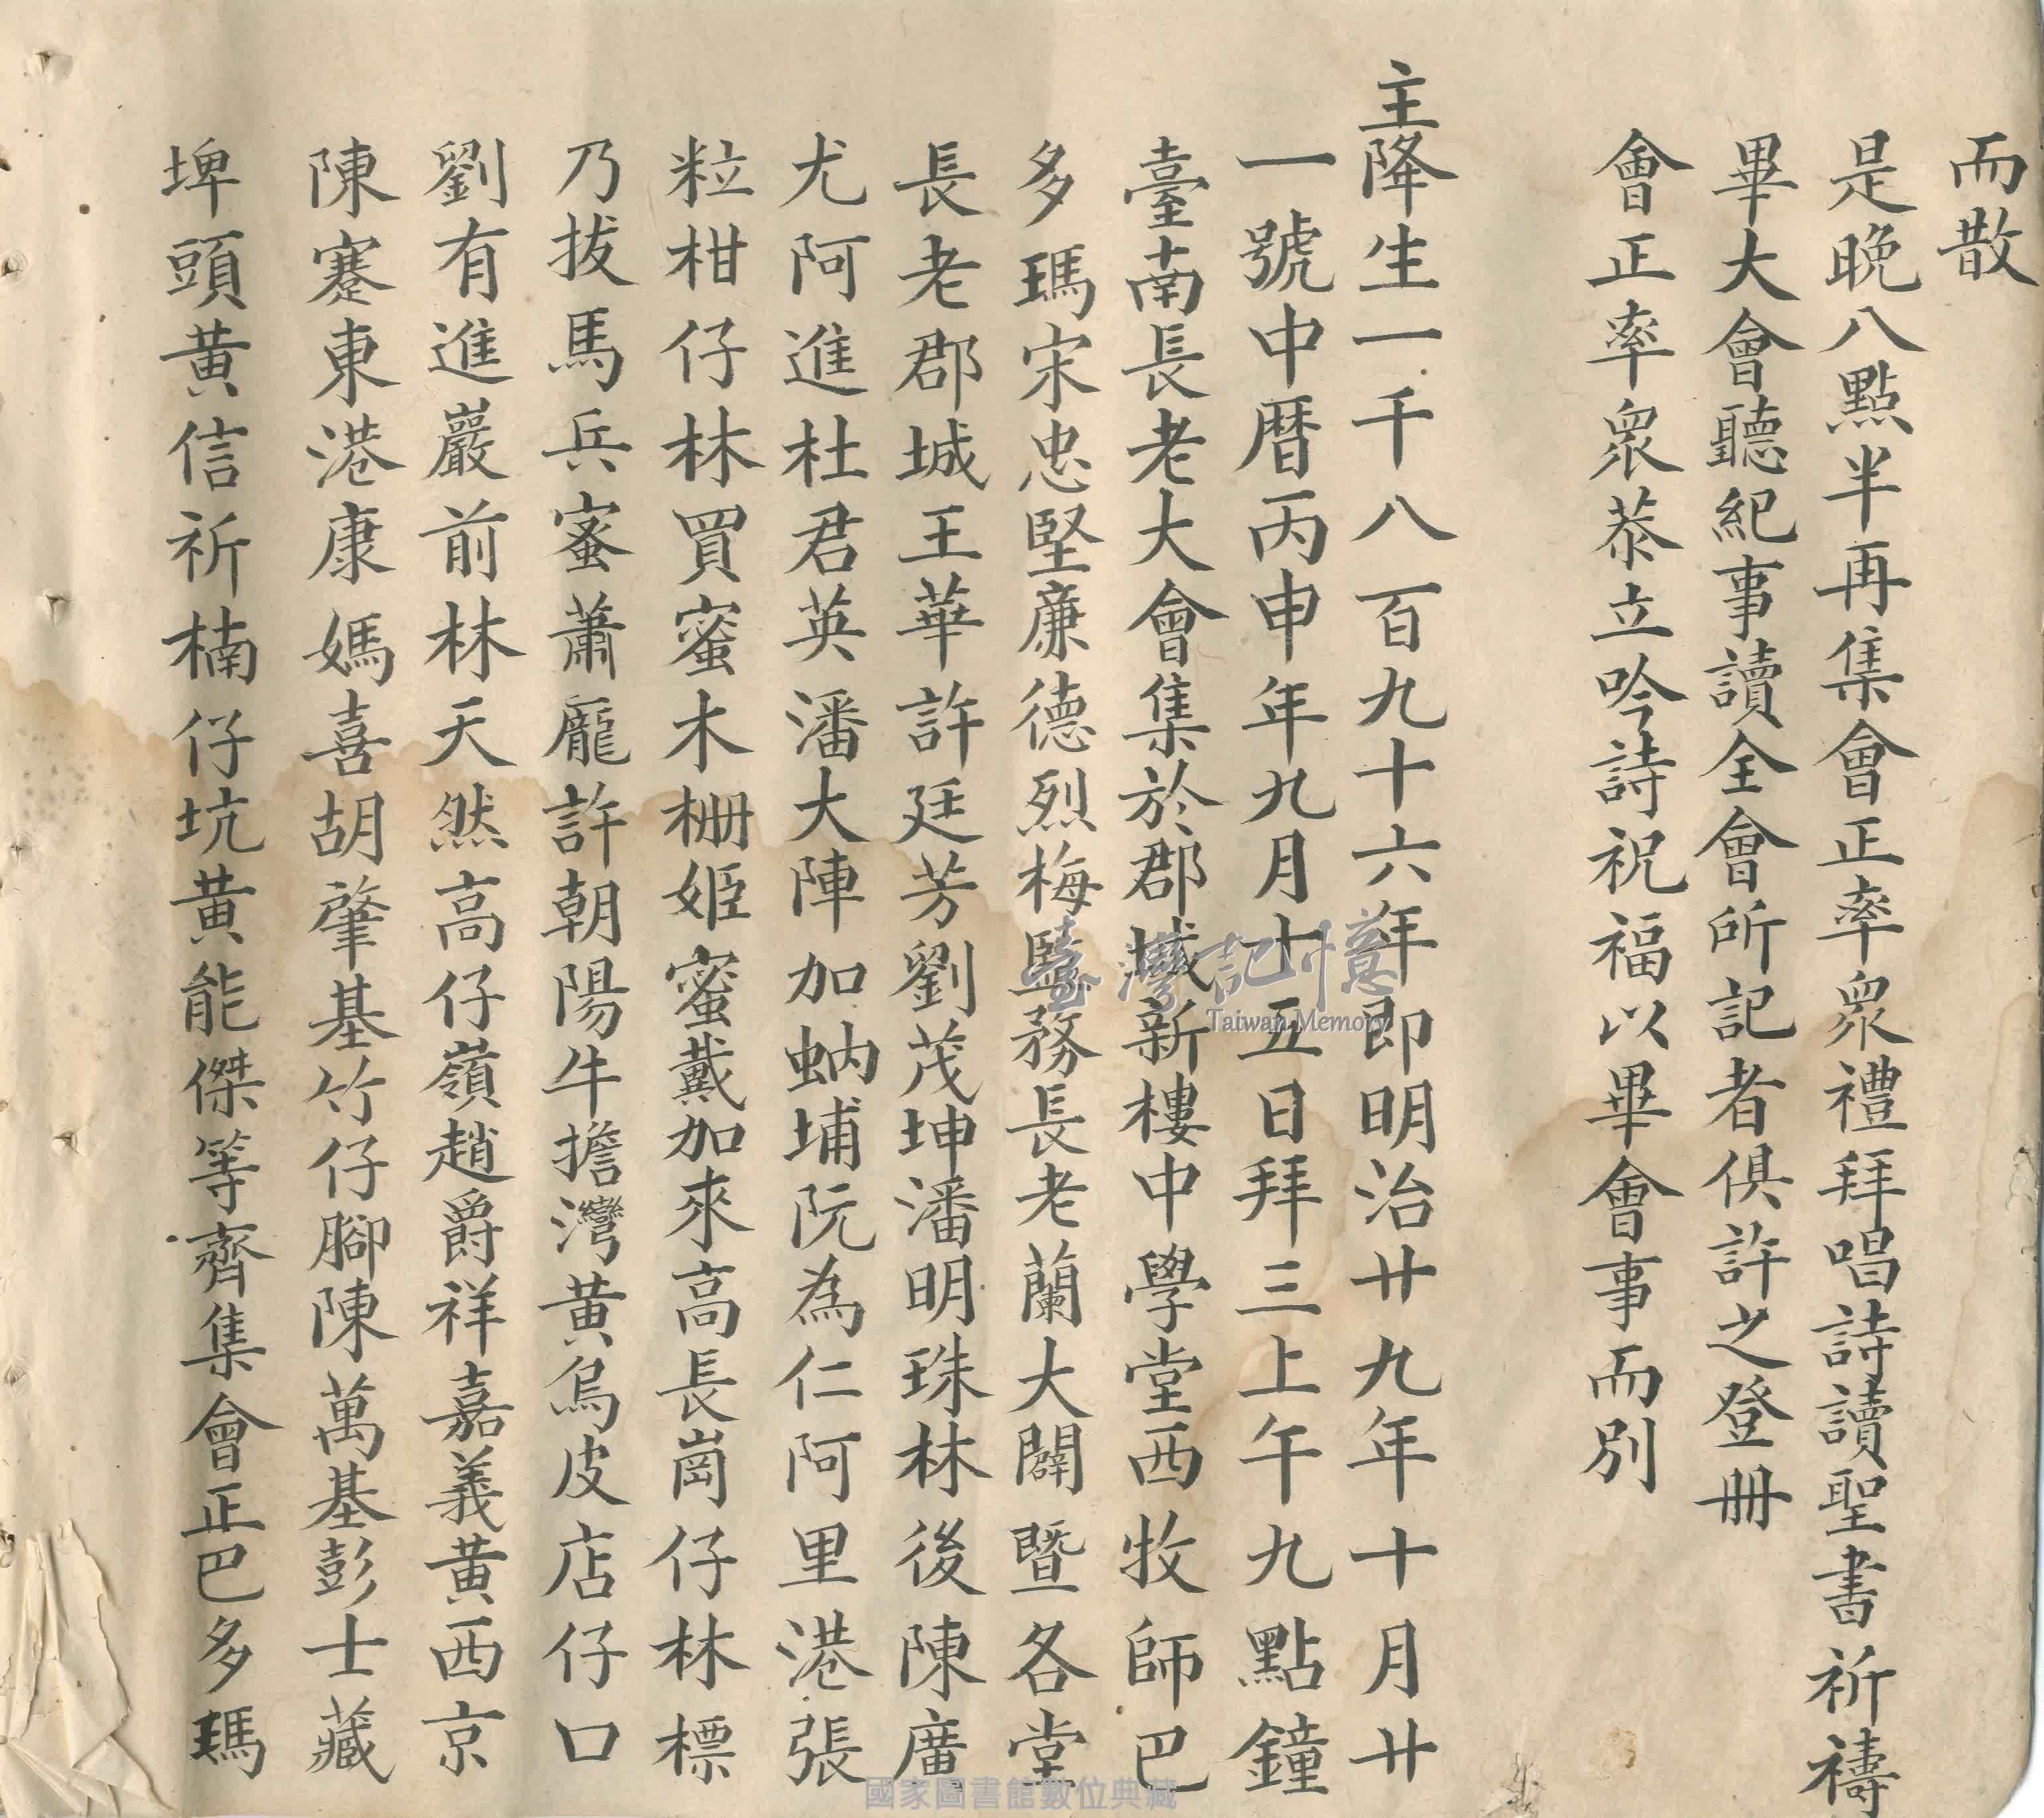 而散
是晚八點半再集會正率眾禮拜唱詩讀聖書祈禱
畢大會聽紀事讀全會所記者俱許之登冊
會正率眾恭立吟詩祝福以畢會事而別
主降生一千八百九十六年即明治廿九年十月廿
一號中曆丙申年九月十五日拜三上午九點鐘
臺南長老大會集於郡城新樓中學堂西牧師巴
多瑪宋忠堅廉德烈梅監務長老蘭大闢暨各堂
長老郡城王華許廷芳劉茂坤潘明珠林後陳廣
尤阿進杜君英潘大陣加蚋埔阮為仁阿里港張
粒柑仔林買蜜木柵姬蜜戴加來高長崗仔林標
乃拔馬兵蜜蕭龐許朝陽牛擔灣黃烏皮店仔口
劉有進嚴前林天然高仔嶺趙爵祥嘉義黃西京
陳蹇東港康媽喜胡肇基竹仔腳陳萬基彭士藏
埤頭黃信祈楠仔坑黃能傑等齊集會正巴多瑪
臺灣記憶
Taiwan Memory
國家圖書館數位典藏